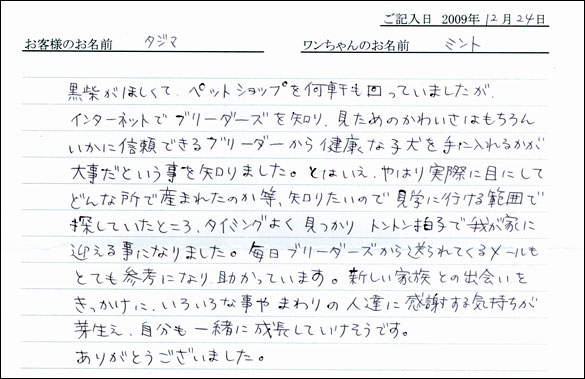 ご記入日 2009年12月24日
お客様のお名前 タジマ ワンちゃんのお名前 ミント
黒柴がほしくて、ペットショップを何軒も回っていましたが、
インターネットでブリーダーズを知り、見ためのかわいさはもちろん
いかに信頼できるブリーダーから健康な子犬を手に入れるかが
大事だという事を知りました。とはいえ、やはり実際に目にして
どんな所で産まれたのか等、知りたいので見学に行ける範囲で
探していたところ、タイミングよく見つかり トントン拍子で我が家に
迎える事になりました。毎日ブリーダーズから送られてくるメールも
とても参考になり、助かっています。新しい家族との出会いを
きっかけに、いろいろな事やまわりの人達に感謝する気持ちが
芽生え、自分も一緒に成長していけそうです。
ありがとうございました。